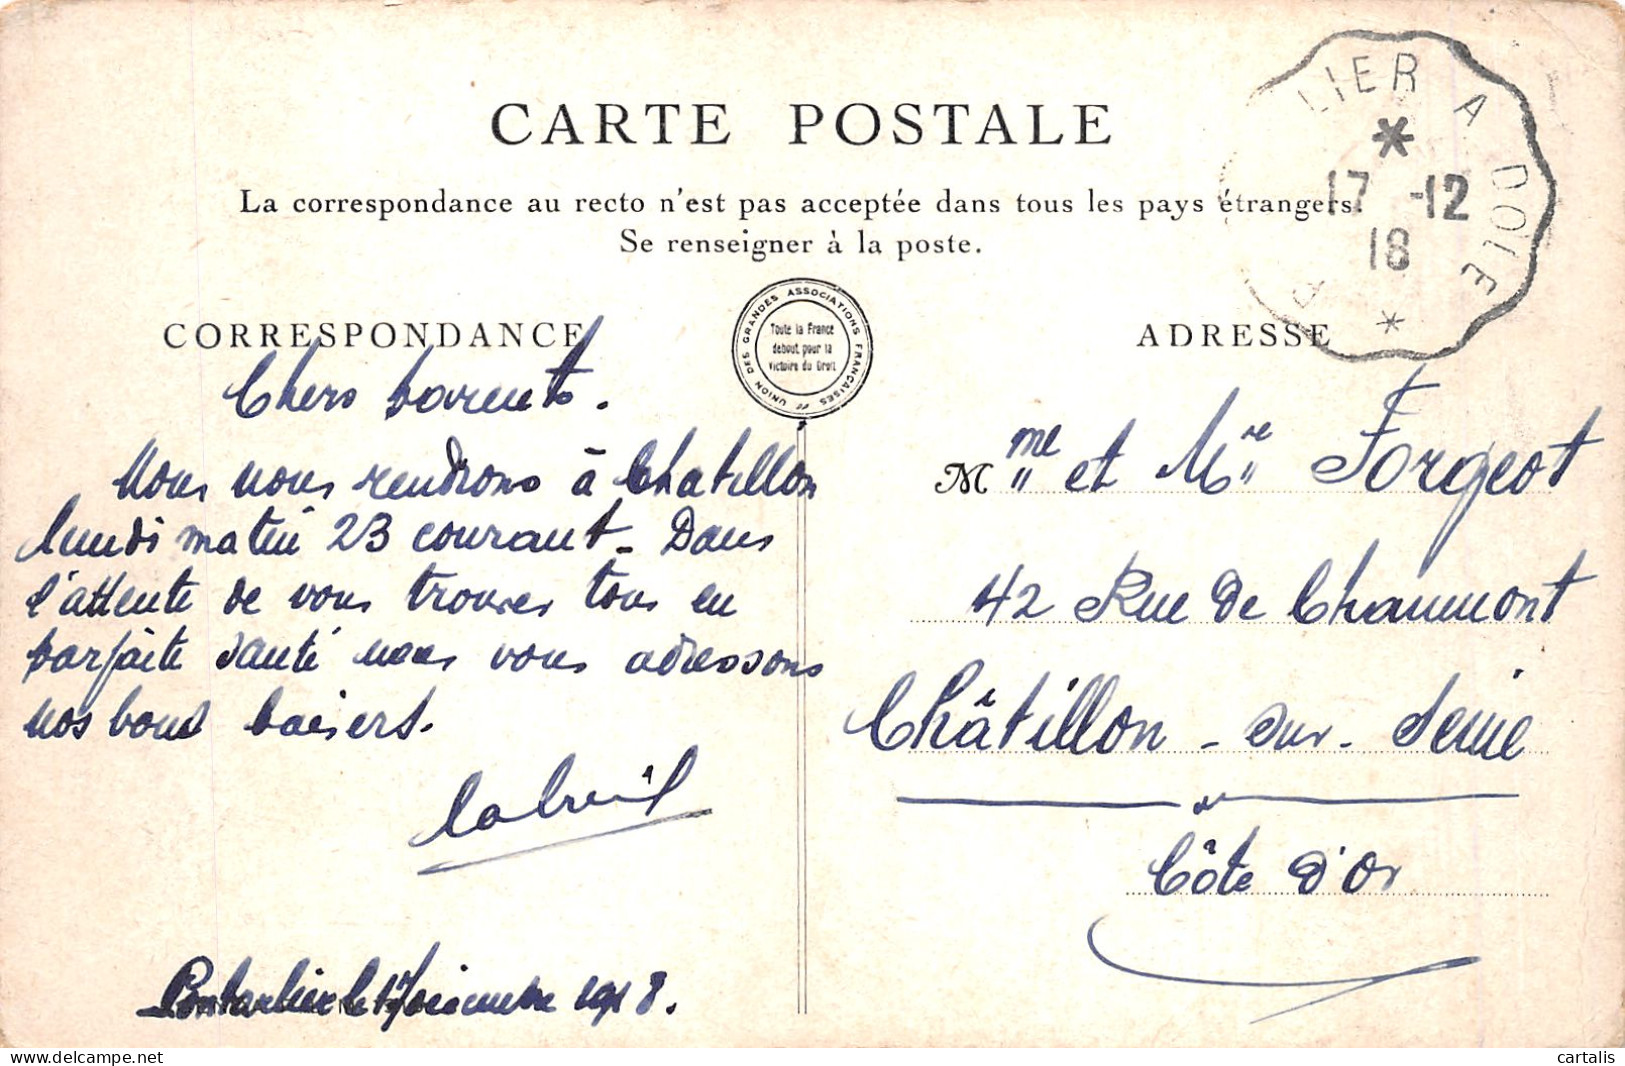 CARTE POSTALE
La correspondance au recto n'est pas acceptée dans tous les pays étrangers.
Se renseigner à la poste.
LIER A DOLE
17 -12
18
P
UNION DES GRANDES ASSOCIATIONS FRANÇAISES
Toute la France
debout pour la
victoire du Droit
CORRESPONDANCE
Chers parents.
Nous nous rendrons à Chatillon
lundi matin 23 courant - Dans
l'attente de vous trouver tous en
parfaite santé nous vous adressons
nos bons baisers.
Pontarlier le 17 décembre 1918.
ADRESSE
Mme et Mre Forgeot
42 Rue de Chaumont
Châtillon - sur - Seine
Côte d'Or
cartalis